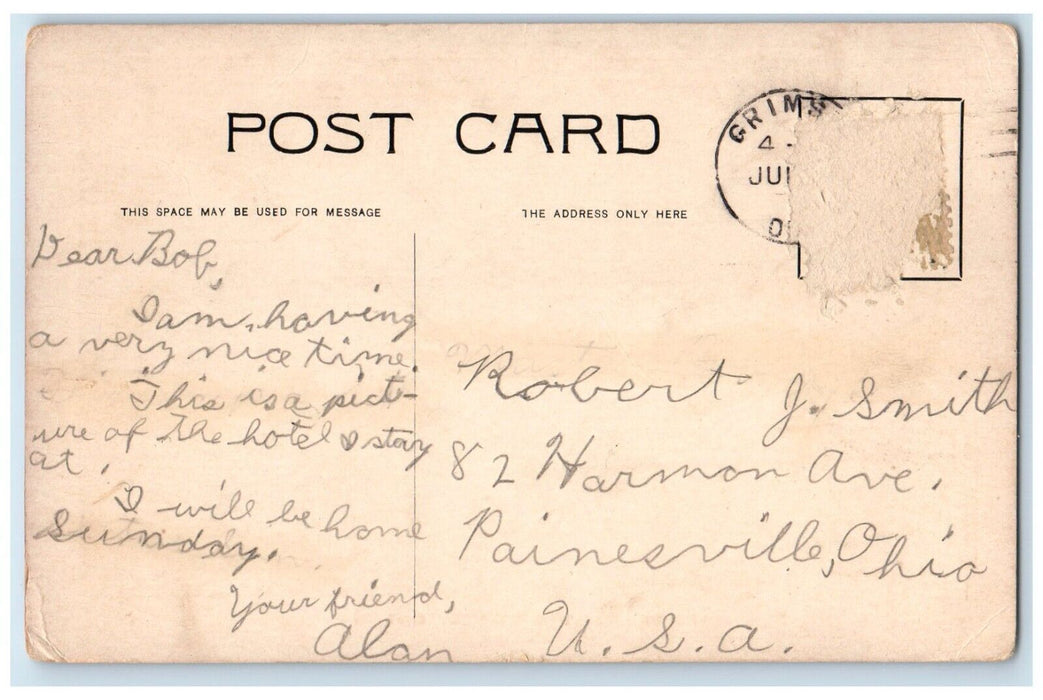 POST CARD
THIS SPACE MAY BE USED FOR MESSAGE
THE ADDRESS ONLY HERE
GRIMS
4
JU
0
Dear Bob,
I am, having
a very nice time.
This is a pict-
ure of the hotel I stay
at.
I will be home
Sunday.
Your friend,
Alan
Robert J. Smith
82 Harmon Ave.
Painesville, Ohio
U. S. A.